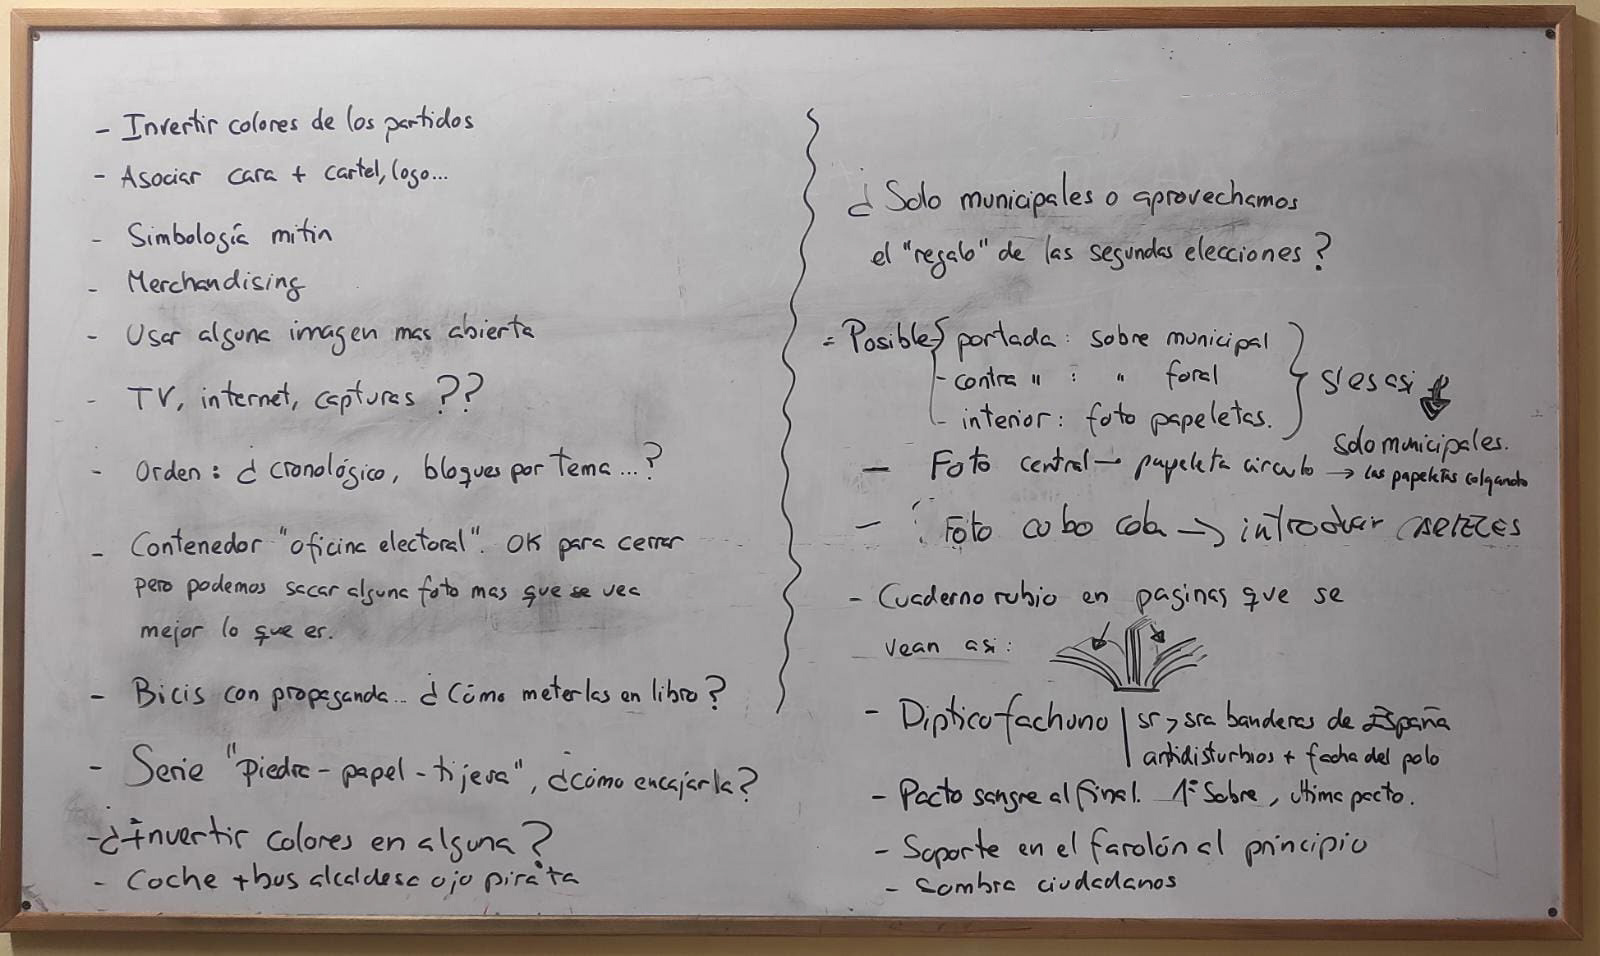 - Invertir colores de los partidos
- Asociar cara + cartel, logo...
- Simbología mitin
- Merchandising
- Usar alguna imagen mas abierta
- TV, internet, capturas ??
- Orden: ¿ cronológico, bloques por tema...?
- Contenedor "oficina electoral". OK para cerrar
pero podemos sacar alguna foto mas que se vea
mejor lo que es.
- Bicis con propaganda... ¿Cómo meterlas en libro?
- Serie "piedra - papel - tijera", ¿cómo encajarla?
- ¿Invertir colores en alguna?
- Coche + bus alcaldesa ojo pirata
¿Solo municipales o aprovechamos
el "regalo" de las segundas elecciones?
= Posible { portada: sobre municipal
- contra " : " foral
- interior: foto papeletas.
Si es asi
Solo municipales.
- Foto central → papeleta circulo → las papeletas colgando
- Foto cubo cola → introducir
- Cuaderno rubio en paginas que se
vean asi:
- Diptico fachuno | sr y sra banderas de España
antidisturbios + facha del polo
- Pacto sangre al final. 1º Sobre, última pacto.
- Soporte en el farolón al principio
- Sombra ciudadanos